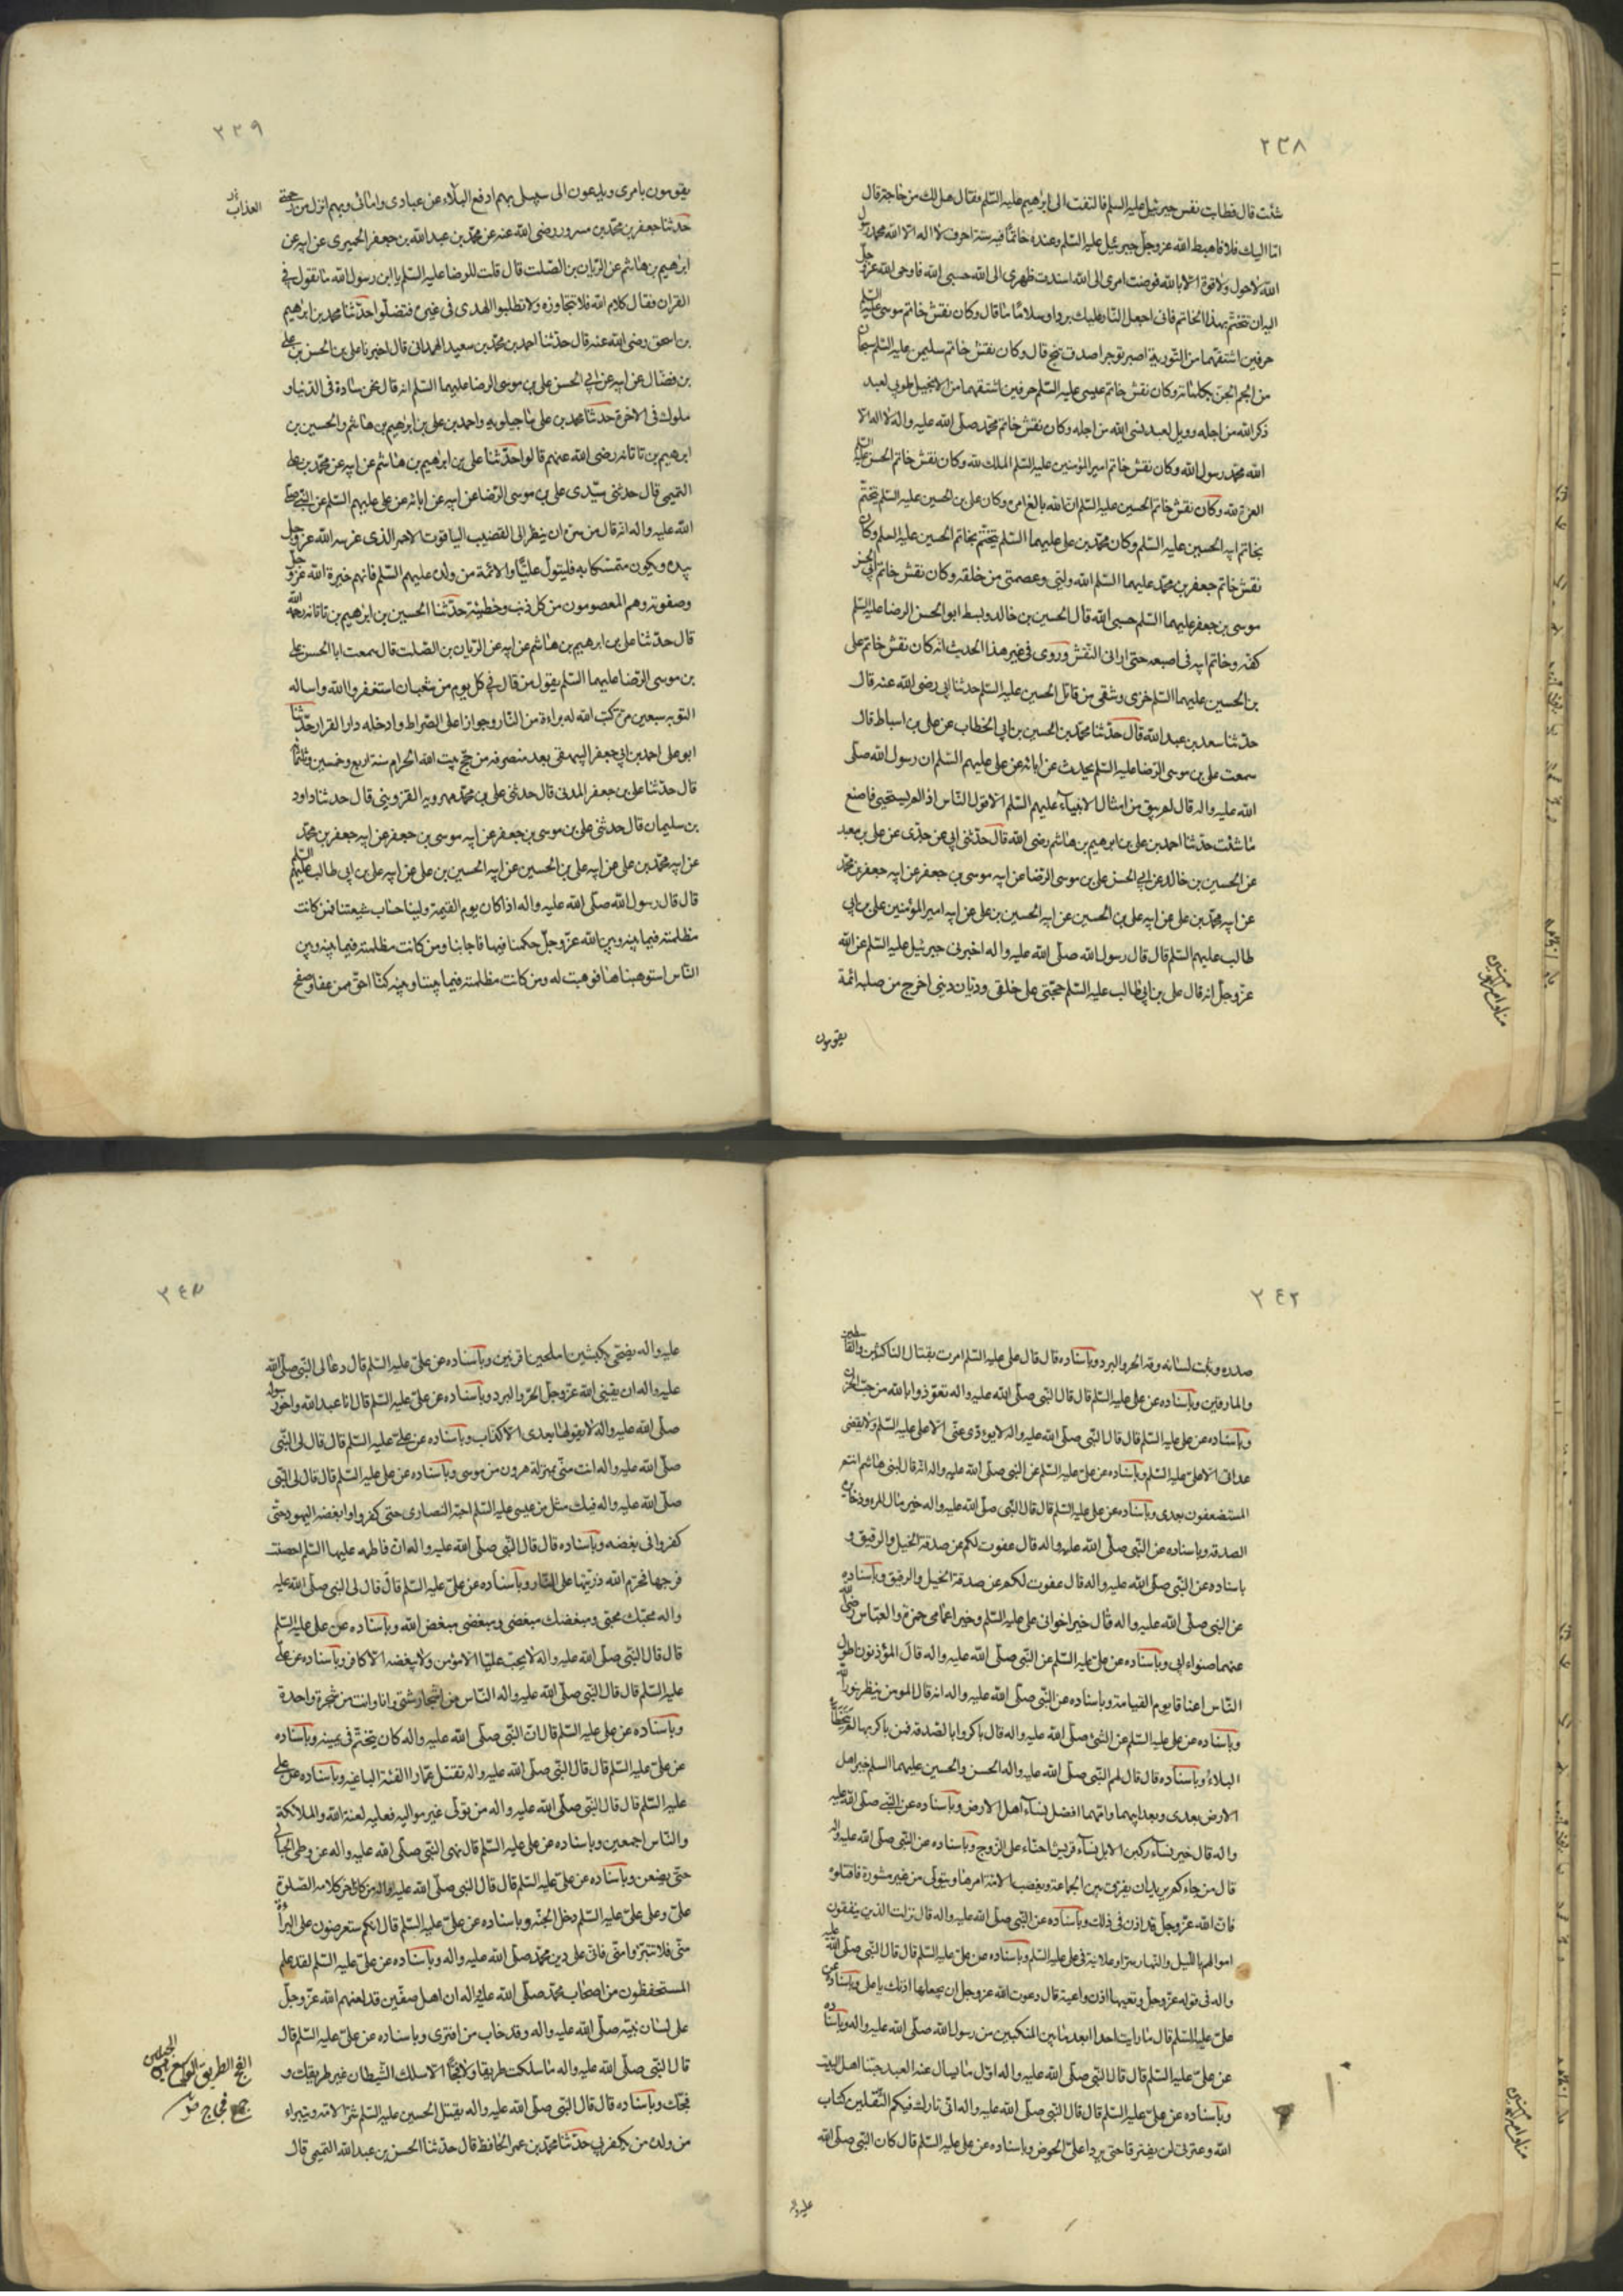 ٢٣٨
شئت قال فطابت نفس جبرئيل عليه السلم فالتفت الى ابرهيم عليه السلم فقال هل لك من حاجة قال
امّا اليك فلا فاهبط الله عزوجل جبرئيل عليه السلم وعنده خاتمًا فيه ستة احرف لا اله الا الله محمد رسول
الله لاحول ولاقوة الا بالله فوضت امرى الى الله اسندت ظهرى الى الله حسبى الله فاوحى الله عزوجل
اليه ان تختم بهذا الخاتم فانى اجعل النار عليك بردا وسلامًا قال وكان نقش خاتم موسى عليه السلم
حرفين اشتقهما من التورية اصبر توجر اصدق تنج قال وكان نقش خاتم سليمن عليه السلم سبحان
من الجم الجن بكلماته وكان نقش خاتم عيسى عليه السلم حرفين اشتقهما من الانجيل طوبى لعبد
ذكر الله من اجله وويل لعبد نسى الله من اجله وكان نقش خاتم محمد صلى الله عليه واله لا اله الا
الله محمد رسول الله وكان نقش خاتم امير المؤمنين عليه السلم الملك لله وكان نقش خاتم الحسن عليه السلم
العزة لله وكان نقش خاتم الحسين عليه السلم ان الله بالغ امره وكان على بن الحسين عليه السلم يتختم
بخاتم ابيه الحسين عليه السلم وكان محمد بن على عليهما السلم يتختم بخاتم الحسين عليه السلم وكان
نقش خاتم جعفر بن محمد عليهما السلم الله وليى وعصمتى من خلقه وكان نقش خاتم ابى الحسن
موسى بن جعفر عليهما السلم حسبى الله قال الحسين بن خالد وبسط ابو الحسن الرضا عليه السلم
كفه وخاتم ابيه فى اصبعه حتى ارانى النقش وروى فى غير هذا الحديث انه كان نقش خاتم على
بن الحسين عليهما السلم خزى وشقى من قاتل الحسين عليه السلم حدثنا ابى رضى الله عنه قال
حدثنا سعد بن عبد الله قال حدثنا محمد بن الحسين بن ابى الخطاب عن على بن اسباط قال
سمعت على بن موسى الرضا عليه السلم يحدث عن ابائه عن على عليهم السلم ان رسول الله صلى
الله عليه واله قال لم يبق من امثال الانبياء عليهم السلم الا قول الناس اذا لم تستحيى فاصنع
ما شئت حدثنا احمد بن على بن ابرهيم بن هاشم رضى الله قال حدثنى ابى عن جدى عن على بن معبد
عن الحسين بن خالد عن ابى الحسن على بن موسى الرضا عن ابيه موسى بن جعفر عن ابيه جعفر بن محمد
عن ابيه محمد بن على عن ابيه على بن الحسين عن ابيه الحسين بن على عن ابيه امير المؤمنين على بن ابى
طالب عليهم السلم قال قال رسول الله صلى الله عليه واله اخبرنى جبرئيل عليه السلم عن الله
عزوجل انه قال على بن ابى طالب عليه السلم حجتى على خلقى وديان دينى اخرج من صلبه ائمة
يقومون
٢٣٩
يقومون بامرى ويدعون الى سبيلى بهم ادفع البلاء عن عبادى وامائى وبهم انزل من رحمتى
العذاب
حدثنا جعفر بن محمد بن مسرور رضى الله عنه عن محمد بن عبد الله بن جعفر الحميرى عن ابيه عن
ابرهيم بن هاشم عن الريان بن الصلت قال قلت للرضا عليه السلم يا ابن رسول الله ما تقول فى
القران فقال كلام الله فلا تتجاوزه ولا تطلبوا الهدى فى غيره فتضلوا حدثنا محمد بن ابرهيم
بن اسحق رضى الله عنه قال حدثنا احمد بن محمد بن سعيد الهمدانى قال اخبرنا على بن الحسن بن على
بن فضال عن ابيه عن ابى الحسن على بن موسى الرضا عليهما السلم انه قال نحن سادة فى الدنيا و
ملوك فى الاخرة حدثنا محمد بن على ماجيلويه واحمد بن على بن ابرهيم بن هاشم والحسين بن
ابرهيم بن تاتانه رضى الله عنهم قالوا حدثنا على بن ابرهيم بن هاشم عن ابيه عن محمد بن على
التميمى قال حدثنى سيدى على بن موسى الرضا عن ابيه عن ابائه عن على عليهم السلم عن النبى صلى
الله عليه واله انه قال من سره ان ينظر الى القضيب الياقوت الاحمر الذى غرسه الله عزوجل
بيده ويكون متمسكا به فليتول عليًا والائمة من ولده عليهم السلم فانهم خيرة الله عزوجل
وصفوته وهم المعصومون من كل ذنب وخطيئة حدثنا الحسين بن ابرهيم بن تاتانه رحمه الله
قال حدثنا على بن ابرهيم بن هاشم عن ابيه عن الريان بن الصلت قال سمعت ابا الحسن على
بن موسى الرضا عليهما السلم يقول من قال فى كل يوم من شعبان استغفر الله واساله
التوبه سبعين مرة كتب الله له براءة من النار وجوازا على الصراط وادخله دار القرار حدثنا
ابو على احمد بن ابى جعفر البيهقى بعد منصرفه من حج بيت الله الحرام سنة اربع وخمسين وثلثمائة
قال حدثنا على بن جعفر المدنى قال حدثنى على بن محمد مهرويه القزوينى قال حدثنا داود
بن سليمان قال حدثنى على بن موسى بن جعفر عن ابيه موسى بن جعفر عن ابيه جعفر بن محمد
عن ابيه محمد بن على عن ابيه على بن الحسين عن ابيه الحسين بن على عن ابيه على بن ابى طالب عليهم السلم
قال قال رسول الله صلى الله عليه واله اذا كان يوم القيمة ولينا حساب شيعتنا فمن كانت
مظلمته فيما بينه وبين الله عزوجل حكمنا فيها فاجابنا ومن كانت مظلمته فيما بينه وبين
الناس استوهبناها فوهبت له ومن كانت مظلمته فيما بيننا وبينه كنا احق من عفا وصفح
٢٤٢
صدره وثبت لسانه وقه الحر والبرد وباسناده قال قال على عليه السلم امرت بقتال الناكثين والقاسطين
والمارقين وباسناده عن على عليه السلم قال قال النبى صلى الله عليه واله تعوذوا بالله من جب الحزن
وباسناده عن على عليه السلم قال قال النبى صلى الله عليه واله لا يؤدى عنى الا على عليه السلم ولا يقضى
عداتى الا على عليه السلم وباسناده عن على عليه السلم عن النبى صلى الله عليه واله انه قال لبنى هاشم انتم
المستضعفون بعدى وباسناده عن على عليه السلم قال قال النبى صلى الله عليه واله خير مال المرء وذخايره
الصدقة وباسناده عن النبى صلى الله عليه واله قال عفوت لكم عن صدقة الخيل والرقيق و
باسناده عن النبى صلى الله عليه واله قال عفوت لكم عن صدقة الخيل والرقيق وباسناده
عن النبى صلى الله عليه واله قال خير اخوانى على عليه السلم وخير اعمامى حمزة والعباس رضى الله
عنهما صنو ابى وباسناده عن على عليه السلم عن النبى صلى الله عليه واله قال المؤذنون اطول
الناس اعناقا يوم القيامة وباسناده عن النبى صلى الله عليه واله انه قال المومن ينظر بنور الله
وباسناده عن على عليه السلم عن النبى صلى الله عليه واله قال باكروا بالصدقة فمن باكر بها لم يتخطاه
البلاء وباسناده قال قال لهم النبى صلى الله عليه واله الحسن والحسين عليهما السلم خير اهل
الارض بعدى وبعد ابيهما وامهما افضل نساء اهل الارض وباسناده عن النبى صلى الله عليه
واله قال خير نساء ركبن الابل نساء قريش احناء على الزوج وباسناده عن النبى صلى الله عليه واله
قال من جاءكم يريد ان يفرق بين الجماعة ويغصب الامة امرها ويتولى من غير مشورة فاقتلوه
فان الله عزوجل قد اذن فى ذلك وباسناده عن النبى صلى الله عليه واله قال نزلت الذين ينفقون
اموالهم بالليل والنهار سرا وعلانية فى على عليه السلم وباسناده عن على عليه السلم قال قال النبى صلى الله عليه
واله فى قوله عزوجل وتعيها اذن واعية قال دعوت الله عزوجل ان يجعلها اذنك يا على وباسناده عن
على عليه السلم قال ما رايت احدا ابعد ما بين المنكبين من رسول الله صلى الله عليه واله وباسناده
عن على عليه السلم قال قال النبى صلى الله عليه واله اول ما يسال عنه العبد حبنا اهل البيت
وباسناده عن على عليه السلم قال قال النبى صلى الله عليه واله انى تارك فيكم الثقلين كتاب
الله وعترتى لن يفترقا حتى يردا على الحوض وباسناده عن على عليه السلم قال كان النبى صلى الله
عليه واله
٢٤٣
عليه واله يضحى بكبشين املحين اقرنين وباسناده عن على عليه السلم قال دعا لى النبى صلى الله
عليه واله ان يقينى الله عزوجل الحر والبرد وباسناده عن على عليه السلم قال انا عبد الله واخو رسوله
صلى الله عليه واله لا يقولها بعدى الا كذاب وباسناده عن على عليه السلم قال قال لى النبى
صلى الله عليه واله انت منى بمنزلة هرون من موسى وباسناده عن على عليه السلم قال قال لى النبى
صلى الله عليه واله فيك مثل من عيسى عليه السلم احبه النصارى حتى كفروا وابغضه اليهود حتى
كفروا فى بغضه وباسناده قال قال النبى صلى الله عليه واله ان فاطمه عليها السلم احصنت
فرجها فحرم الله ذريتها على النار وباسناده عن على عليه السلم قال قال لى النبى صلى الله عليه
واله محبك محبى ومبغضك مبغضى ومبغضى مبغض الله وباسناده عن على عليه السلم
قال قال النبى صلى الله عليه واله لا يحب عليا الا مؤمن ولا يبغضه الا كافر وباسناده عن على
عليه السلم قال قال النبى صلى الله عليه واله الناس من اشجار شتى وانا وانت من شجرة واحدة
وباسناده عن على عليه السلم قال ان النبى صلى الله عليه واله كان يتختم فى يمينه وباسناده
عن على عليه السلم قال قال النبى صلى الله عليه واله تقتل عمارا الفئة الباغيه وباسناده عن على
عليه السلم قال قال النبى صلى الله عليه واله من تولى غير مواليه فعليه لعنة الله والملائكة
والناس اجمعين وباسناده عن على عليه السلم قال نهى النبى صلى الله عليه واله عن وطى الحبالى
حتى يضعن وباسناده عن على عليه السلم قال قال النبى صلى الله عليه واله من كان اخر كلامه الصلوة
على وعلى على عليه السلم دخل الجنه وباسناده عن على عليه السلم قال انكم ستعرضون على البراءة
منى فلا تتبرّوا منى فانى على دين محمد صلى الله عليه واله وباسناده عن على عليه السلم لقد علم
المستحفظون من اصحاب محمد صلى الله عليه واله ان اهل صفين قد لعنهم الله عزوجل
على لسان نبيه صلى الله عليه واله وقد خاب من افترى وباسناده عن على عليه السلم قال
قال النبى صلى الله عليه واله ما سلكت طريقا ولا فجًا الا سلك الشيطان غير طريقك و
فجك وباسناده قال قال النبى صلى الله عليه واله يقتل الحسين عليه السلم شر الامة ويتبراء
من ولده من يكفر بى حدثنا محمد بن عمر الحافظ قال حدثنا الحسن بن عبد الله التميمى قال
الفج الطريق الواسع بين
الجبلين
فجاج